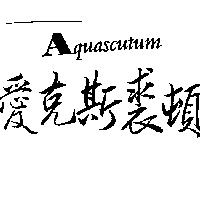 Aquascutum
愛克斯裘頓